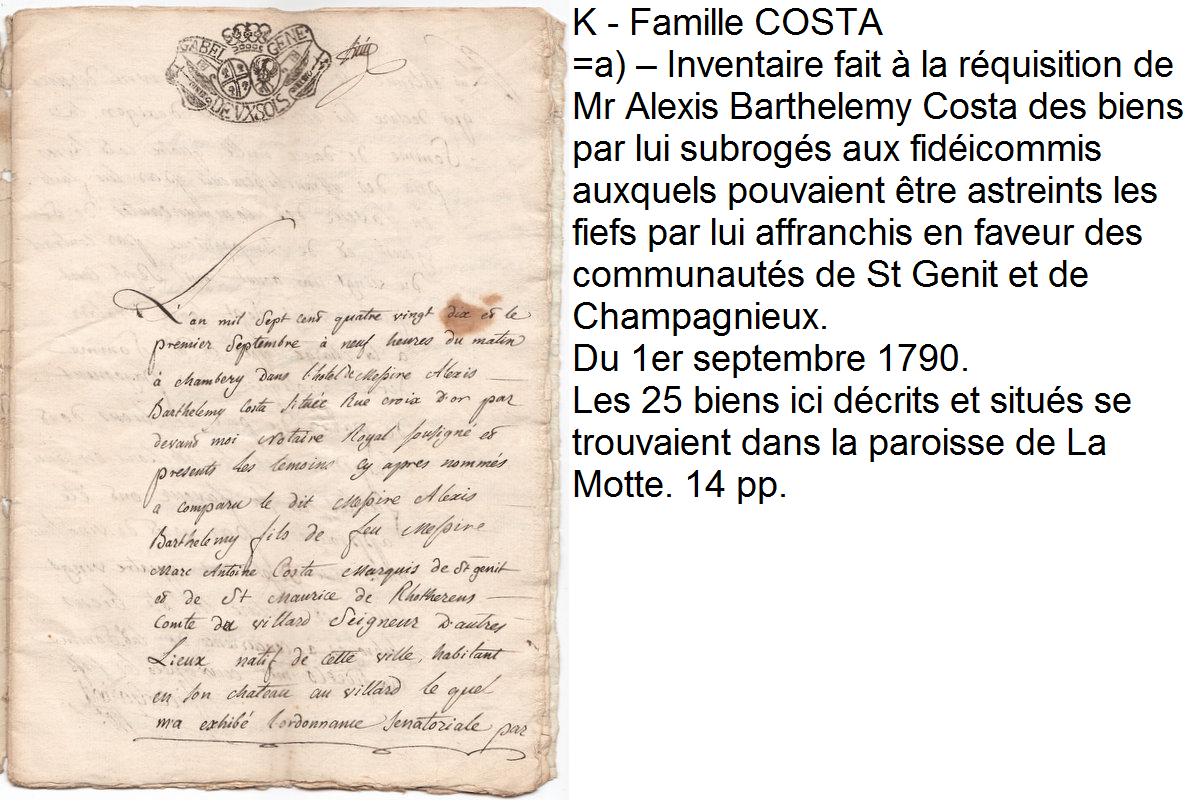 GABEL GENE
DE UX SOLS
L'an mil Sept cens quatre vingt dix et le
premier Septembre à neuf heures du matin
à chambery dans l'hotel de Messire Alexis
Barthelemy Costa Située Rue croix D'or par
devant moi Notaire Royal soussigné et
presents les temoins cy apres nommés
a comparu le dit Messire Alexis
Barthelemy fils de feu Messire
Marc Antoine Costa Marquis de St genit
et de St Maurice de Rhotherens
Comte du villard Seigneur D'autres
Lieux natif de cette ville, habitant
en son chateau au villard le quel
m'a exhibé l'ordonnance Senatoriale par
K - Famille COSTA
=a) – Inventaire fait à la réquisition de
Mr Alexis Barthelemy Costa des biens
par lui subrogés aux fidéicommis
auxquels pouvaient être astreints les
fiefs par lui affranchis en faveur des
communautés de St Genit et de
Champagnieux.
Du 1er septembre 1790.
Les 25 biens ici décrits et situés se
trouvaient dans la paroisse de La
Motte. 14 pp.